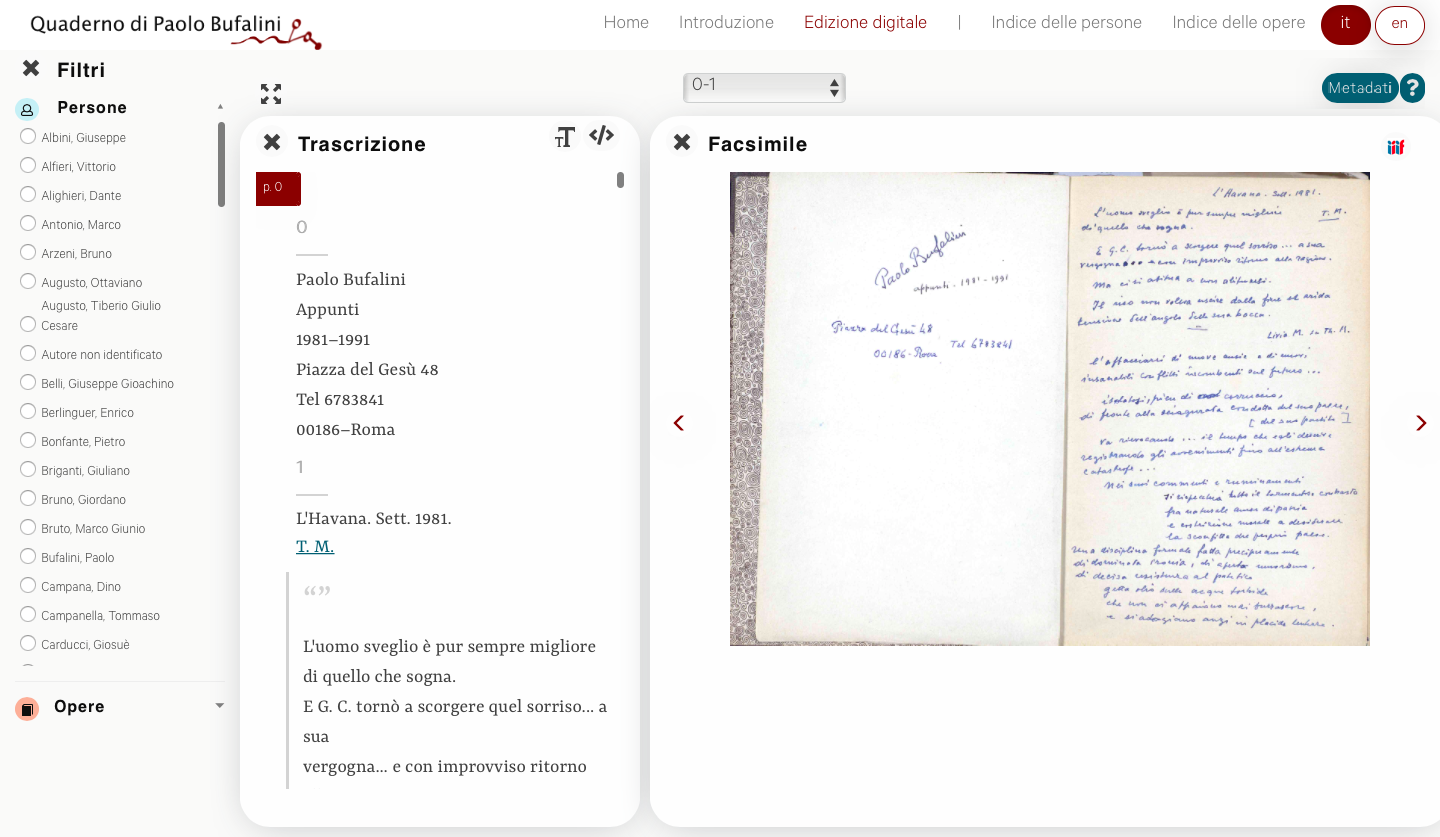 Quaderno di Paolo Bufalini
Home Introduzione Edizione digitale | Indice delle persone Indice delle opere it en
Filtri
Persone
Albini, Giuseppe
Alfieri, Vittorio
Alighieri, Dante
Antonio, Marco
Arzeni, Bruno
Augusto, Ottaviano
Augusto, Tiberio Giulio
Cesare
Autore non identificato
Belli, Giuseppe Gioachino
Berlinguer, Enrico
Bonfante, Pietro
Briganti, Giuliano
Bruno, Giordano
Bruto, Marco Giunio
Bufalini, Paolo
Campana, Dino
Campanella, Tommaso
Carducci, Giosuè
Opere
0-1
Metadati ?
Trascrizione
p. 0
0
Paolo Bufalini
Appunti
1981–1991
Piazza del Gesù 48
Tel 6783841
00186–Roma
1
L'Havana. Sett. 1981.
T. M.
“”
L'uomo sveglio è pur sempre migliore
di quello che sogna.
E G. C. tornò a scorgere quel sorriso... a
sua
vergogna... e con improvviso ritorno
Facsimile
iiif
Paolo Bufalini
appunti - 1981 - 1991
Piazza del Gesù 48
00186 - Roma Tel 6783841
L'Havana. Sett. 1981.
L'uomo sveglio è pur sempre migliore T. M.
di quello che sogna.
E G.C. tornò a scorgere quel sorriso... a sua
vergogna... e con improvviso ritorno alla ragione.
Ma ci si abitua a non abituarsi.
Il viso non voleva uscire dalla
tensione dell'angolo della sua bocca.
Livia M. su Th. M.
L'affacciarsi di nuove ansie e di nuovi
insanabili conflitti incombenti sul futuro...
di fronte alla sciagurata condotta del suo paese,
[del suo partito]
va rievocando ... il tempo che
registrando gli avvenimenti fino all'estrema
catastrofe...
Nei suoi commenti e ruminamenti
si rispecchia tutto il tormentoso contrasto
fra naturale amor di patria
e costrizione morale a desiderare
la sconfitta del proprio paese.
Una disciplina formale fatta precipuamente
di dominata ironia, di aperto umorismo,
di decisa resistenza al patetico
getta olio sulle acque torbide
che non ci appaiono mai burrascose,
e si adagiano anzi in placido